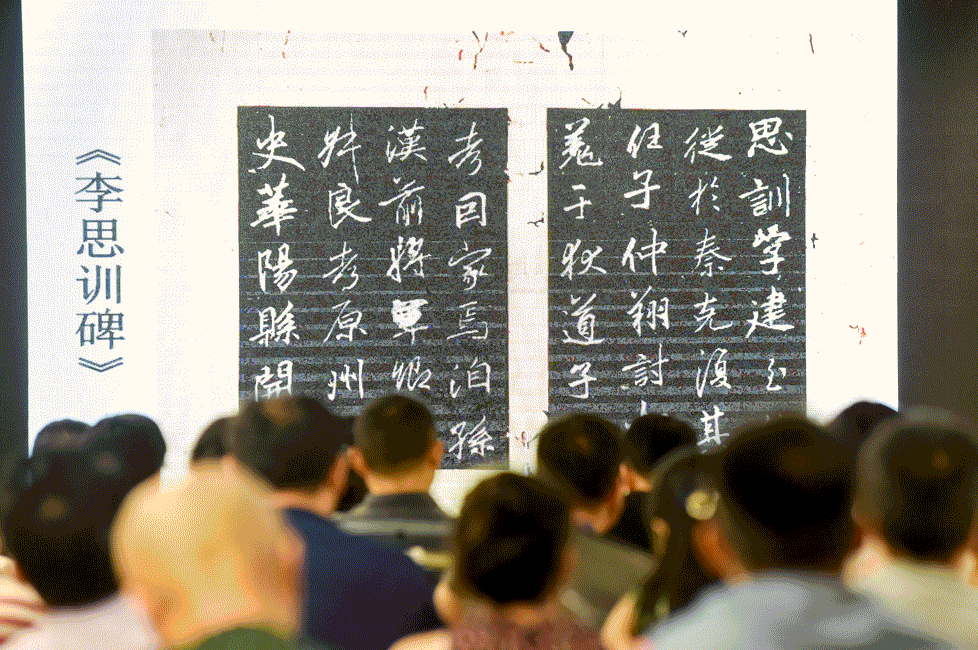 《李思训碑》
思訓字建至
徙於秦克復其
任子仲翔討
羌于狄道子
考因家焉洎孫
漢前將軍
良考原州
史華陽縣開